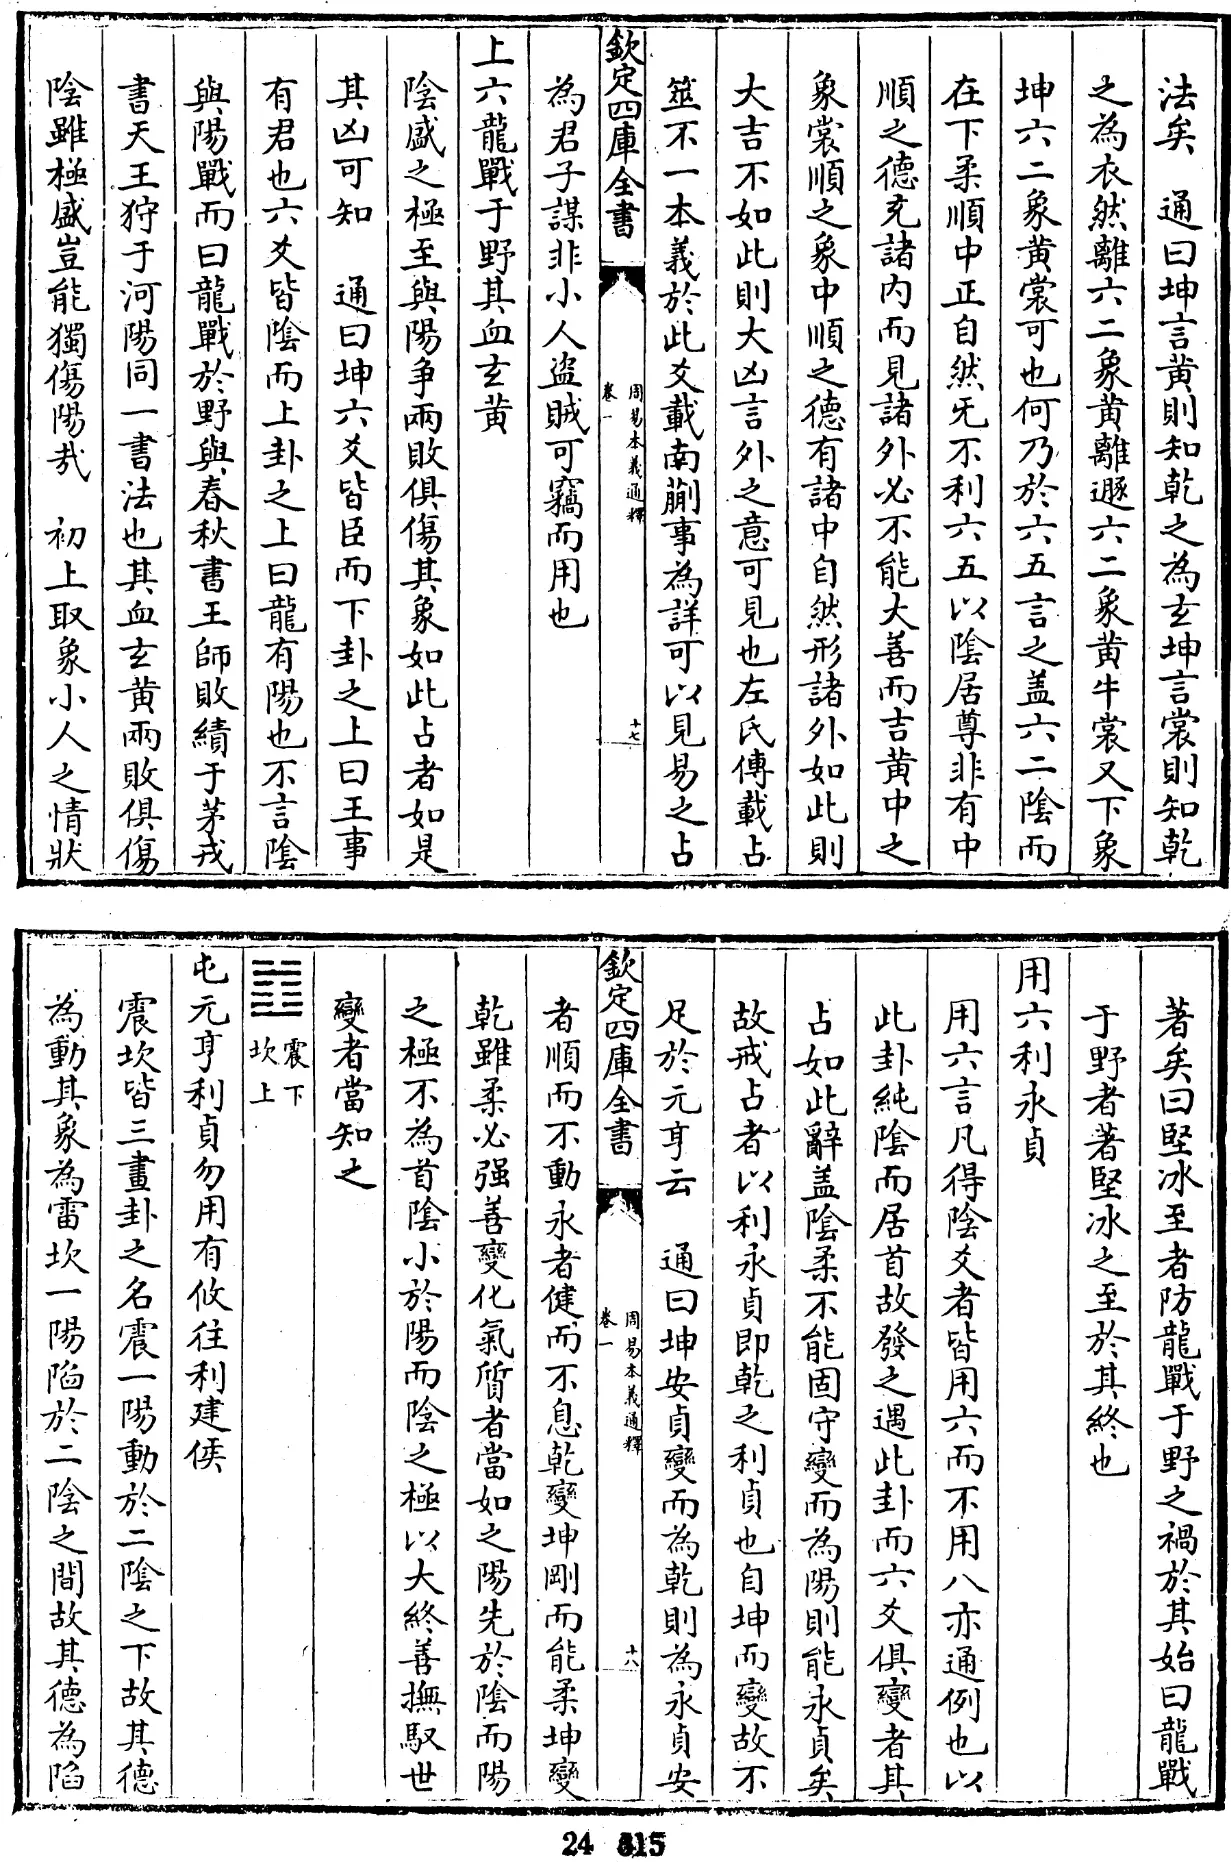 法矣　通曰坤言黄則知乾之為玄坤言裳則知乾
之為衣然離六二象黄離遯六二象黄牛裳又下象
坤六二象黄裳可也何乃於六五言之盖六二陰而
在下柔順中正自然无不利六五以陰居尊非有中
順之德充諸内而見諸外必不能大善而吉黄中之
象裳順之象中順之德有諸中自然形諸外如此則
大吉不如此則大凶言外之意可見也左氏傳載占
筮不一本義於此爻載南蒯事為詳可以見易之占
欽定四庫全書
周易本義通釋
卷一
十七
為君子謀非小人盗賊可竊而用也
上六龍戰于野其血玄黄
陰盛之極至與陽争兩敗俱傷其象如此占者如是
其凶可知　通曰坤六爻皆臣而下卦之上曰王事
有君也六爻皆陰而上卦之上曰龍有陽也不言陰
與陽戰而曰龍戰於野與春秋書王師敗績于茅戎
書天王狩于河陽同一書法也其血玄黄兩敗俱傷
陰雖極盛豈能獨傷陽哉　初上取象小人之情狀
著矣曰堅冰至者防龍戰于野之禍於其始曰龍戰
于野者著堅冰之至於其終也
用六利永貞
用六言凡得陰爻者皆用六而不用八亦通例也以
此卦純陰而居首故發之遇此卦而六爻俱變者其
占如此辭盖陰柔不能固守變而為陽則能永貞矣
故戒占者以利永貞即乾之利貞也自坤而變故不
足於元亨云　通曰坤安貞變而為乾則為永貞安
欽定四庫全書
周易本義通釋
卷一
十八
者順而不動永者健而不息乾變坤剛而能柔坤變
乾雖柔必强善變化氣質者當如之陽先於陰而陽
之極不為首陰小於陽而陰之極以大終善撫馭世
變者當知之
䷂震下
坎上
屯元亨利貞勿用有攸往利建侯
震坎皆三畫卦之名震一陽動於二陰之下故其德
為動其象為雷坎一陽陷於二陰之間故其德為陷
24 815